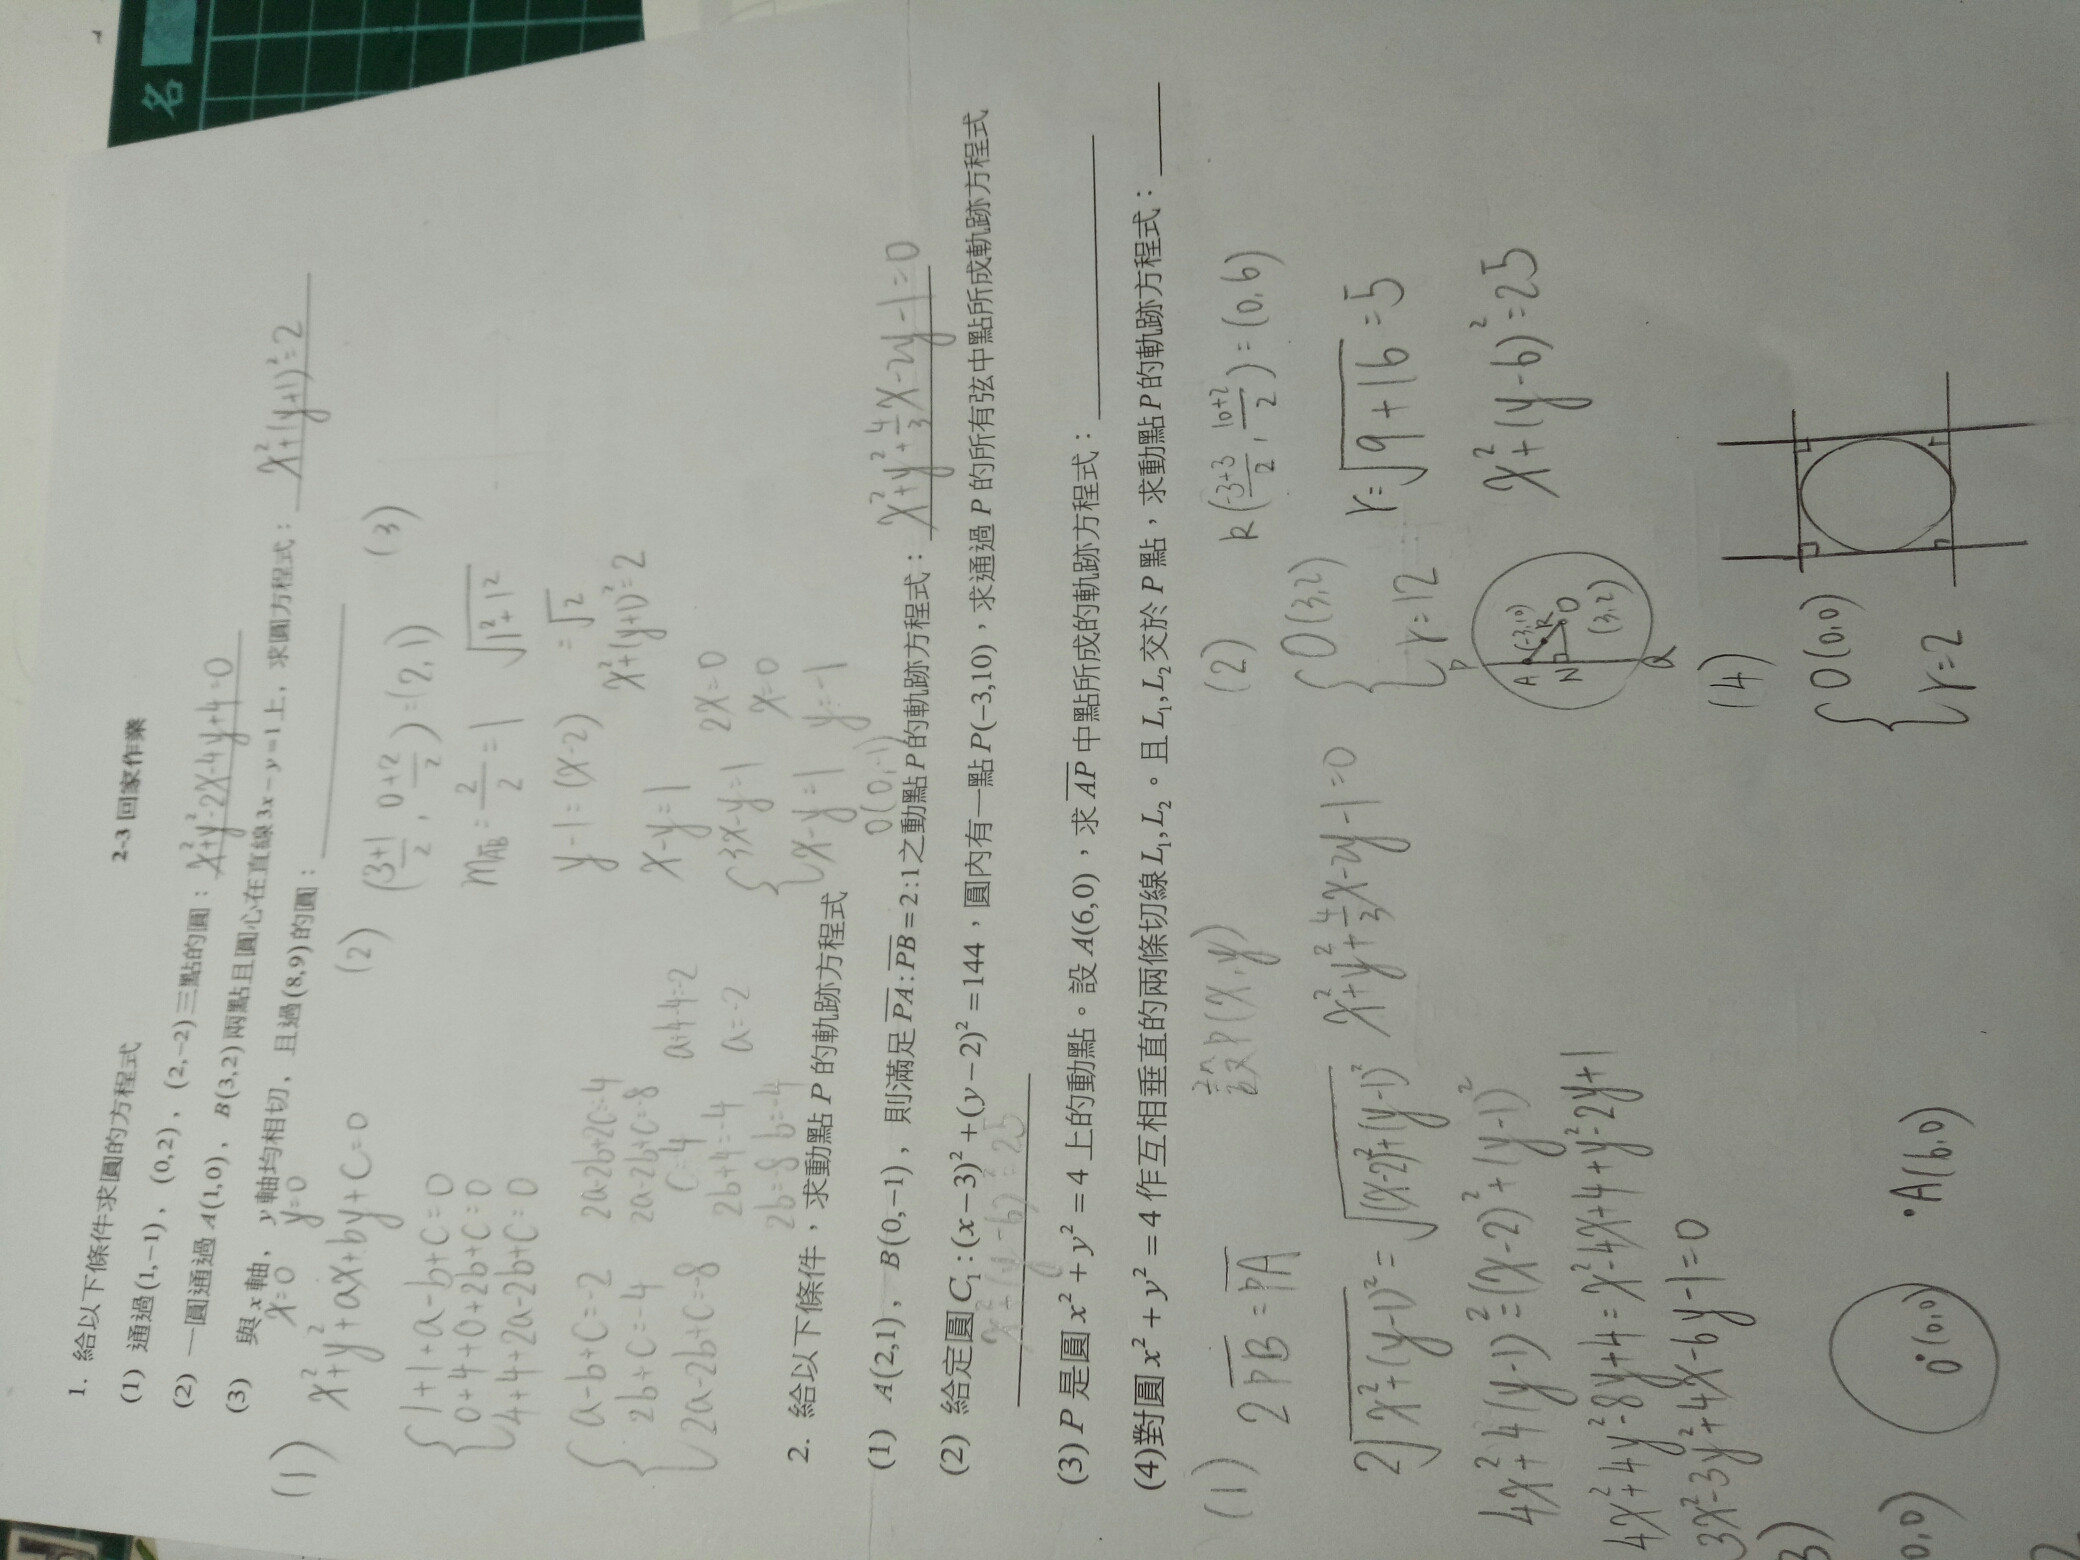 名
2-3 回家作業
1. 給以下條件求圓的方程式
(1) 通過(1,−1)、(0,2)、(2,−2)三點的圓：x²+y²-2x-4y+4=0
(2) 一圓通過A(1,0)、B(3,2)兩點且圓心在直線3x−y=1上，求圓方程式：x²+(y+1)²=2
(3) 與x軸、y軸均相切，且過(8,9)的圓：
x=0 y=0
(1) x²+y²+ax+by+c=0
1+1+a-b+c=0
0+4+0+2b+c=0
4+4+2a-2b+c=0
a-b+c=-2
2b+c=-4
2a-2b+c=-8
2a-2b+2c=-4
2a-2b+c=-8
c=4
2b+4=-4
2b=-8 b=-4
a+4+4=-2
a=-2
(2)
(3+1/2, 0+2/2)=(2,1)
mAB=2/2=1
y-1=(x-2)
x-y=1
3x-y=1
x-y=1
2x=0
x=0
y=-1
O(0,-1)
√1²+1²
=√2
x²+(y+1)²=2
(3)
2. 給以下條件，求動點P的軌跡方程式
(1) A(2,1)，B(0,−1)，則滿足PA:PB=2:1之動點P的軌跡方程式：x²+y²+4/3x-2y-1=0
(2) 給定圓C₁:(x−3)²+(y−2)²=144，圓內有一點P(−3,10)，求通過P的所有弦中點所成軌跡方程式
x²+(y-6)²=25
(3) P是圓x²+y²=4上的動點。設A(6,0)，求AP中點所成的軌跡方程式：
(4)對圓x²+y²=4作互相垂直的兩條切線L₁,L₂。且L₁,L₂交於P點，求動點P的軌跡方程式：
(1) 2PB=PA
設P(x,y)
2√x²+(y-1)²=√(x-2)²+(y-1)²
4x²+4(y-1)²=(x-2)²+(y-1)²
4x²+4y²-8y+4=x²-4x+4+y²-2y+1
3x²-3y²+4x-6y-1=0
x²+y²+4/3x-2y-1=0
(2)
O(3,2)
r=12
k(-3+3/2, 10+2/2)=(0,6)
r=√9+16=5
x²+(y-6)²=25
P
A
(-3,10)
N
k
O
(3,2)
Q
3)
0,0)
O(0,0)
A(6,0)
(4)
O(0,0)
r=2